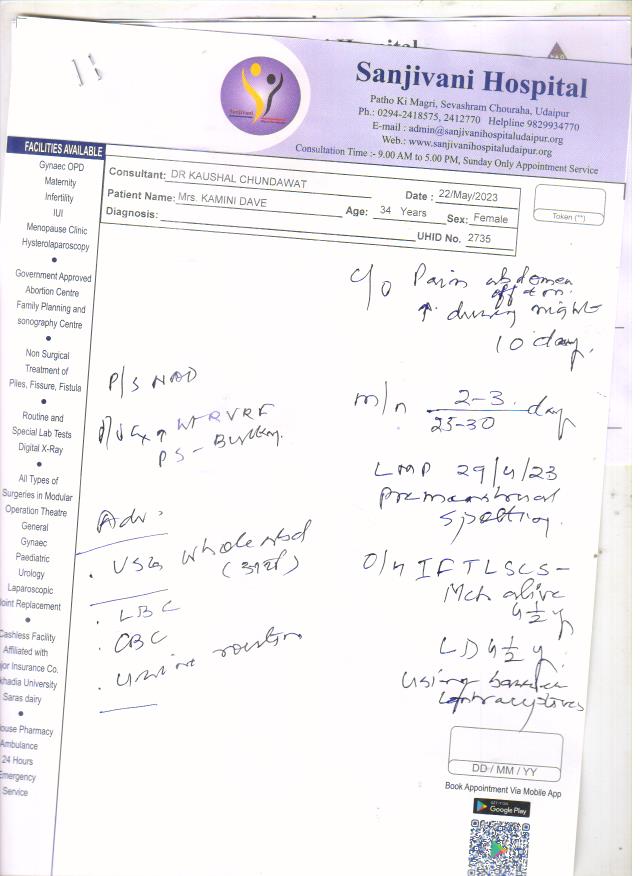 Sanjivani Hospital
Patho Ki Magri, Sevashram Chouraha, Udaipur
Ph.: 0294-2418575, 2412770 Helpline 9829934770
E-mail : admin@sanjivanihospitaludaipur.org
Web.: www.sanjivanihospitaludaipur.org
Consultation Time :- 9.00 AM to 5.00 PM, Sunday Only Appointment Service
Sanjivani
Consultant: DR KAUSHAL CHUNDAWAT
Date : 22/May/2023
Patient Name: Mrs. KAMINI DAVE
Age: 34 Years Sex: Female
Diagnosis:
UHID No. 2735
Token (**)
FACILITIES AVAILABLE
Gynaec OPD
Maternity
Infertility
IUI
Menopause Clinic
Hysterolaparoscopy
Government Approved
Abortion Centre
Family Planning and
sonography Centre
Non Surgical
Treatment of
Piles, Fissure, Fistula
Routine and
Special Lab Tests
Digital X-Ray
All Types of
Surgeries in Modular
Operation Theatre
General
Gynaec
Paediatric
Urology
Laparoscopic
Joint Replacement
Cashless Facility
Affiliated with
jor Insurance Co.
khadia University
Saras dairy
ouse Pharmacy
Ambulance
24 Hours
Emergency
Service
C/o Pain abdomen
off & on
↑ during night
10 day.
P/S NAD
RVRF
PS -
m/h 2-3 / 25-30 day
LMP 29/4/23
premenstrual
spotting.
Adv:
. USG whole abd
. LBC
. CBC
. urine routine
O/H I FTLSCS -
Mch alive
4½ y
LD 4½ y.
using
contraceptives
DD / MM / YY
Book Appointment Via Mobile App
GET IT ON
Google Play